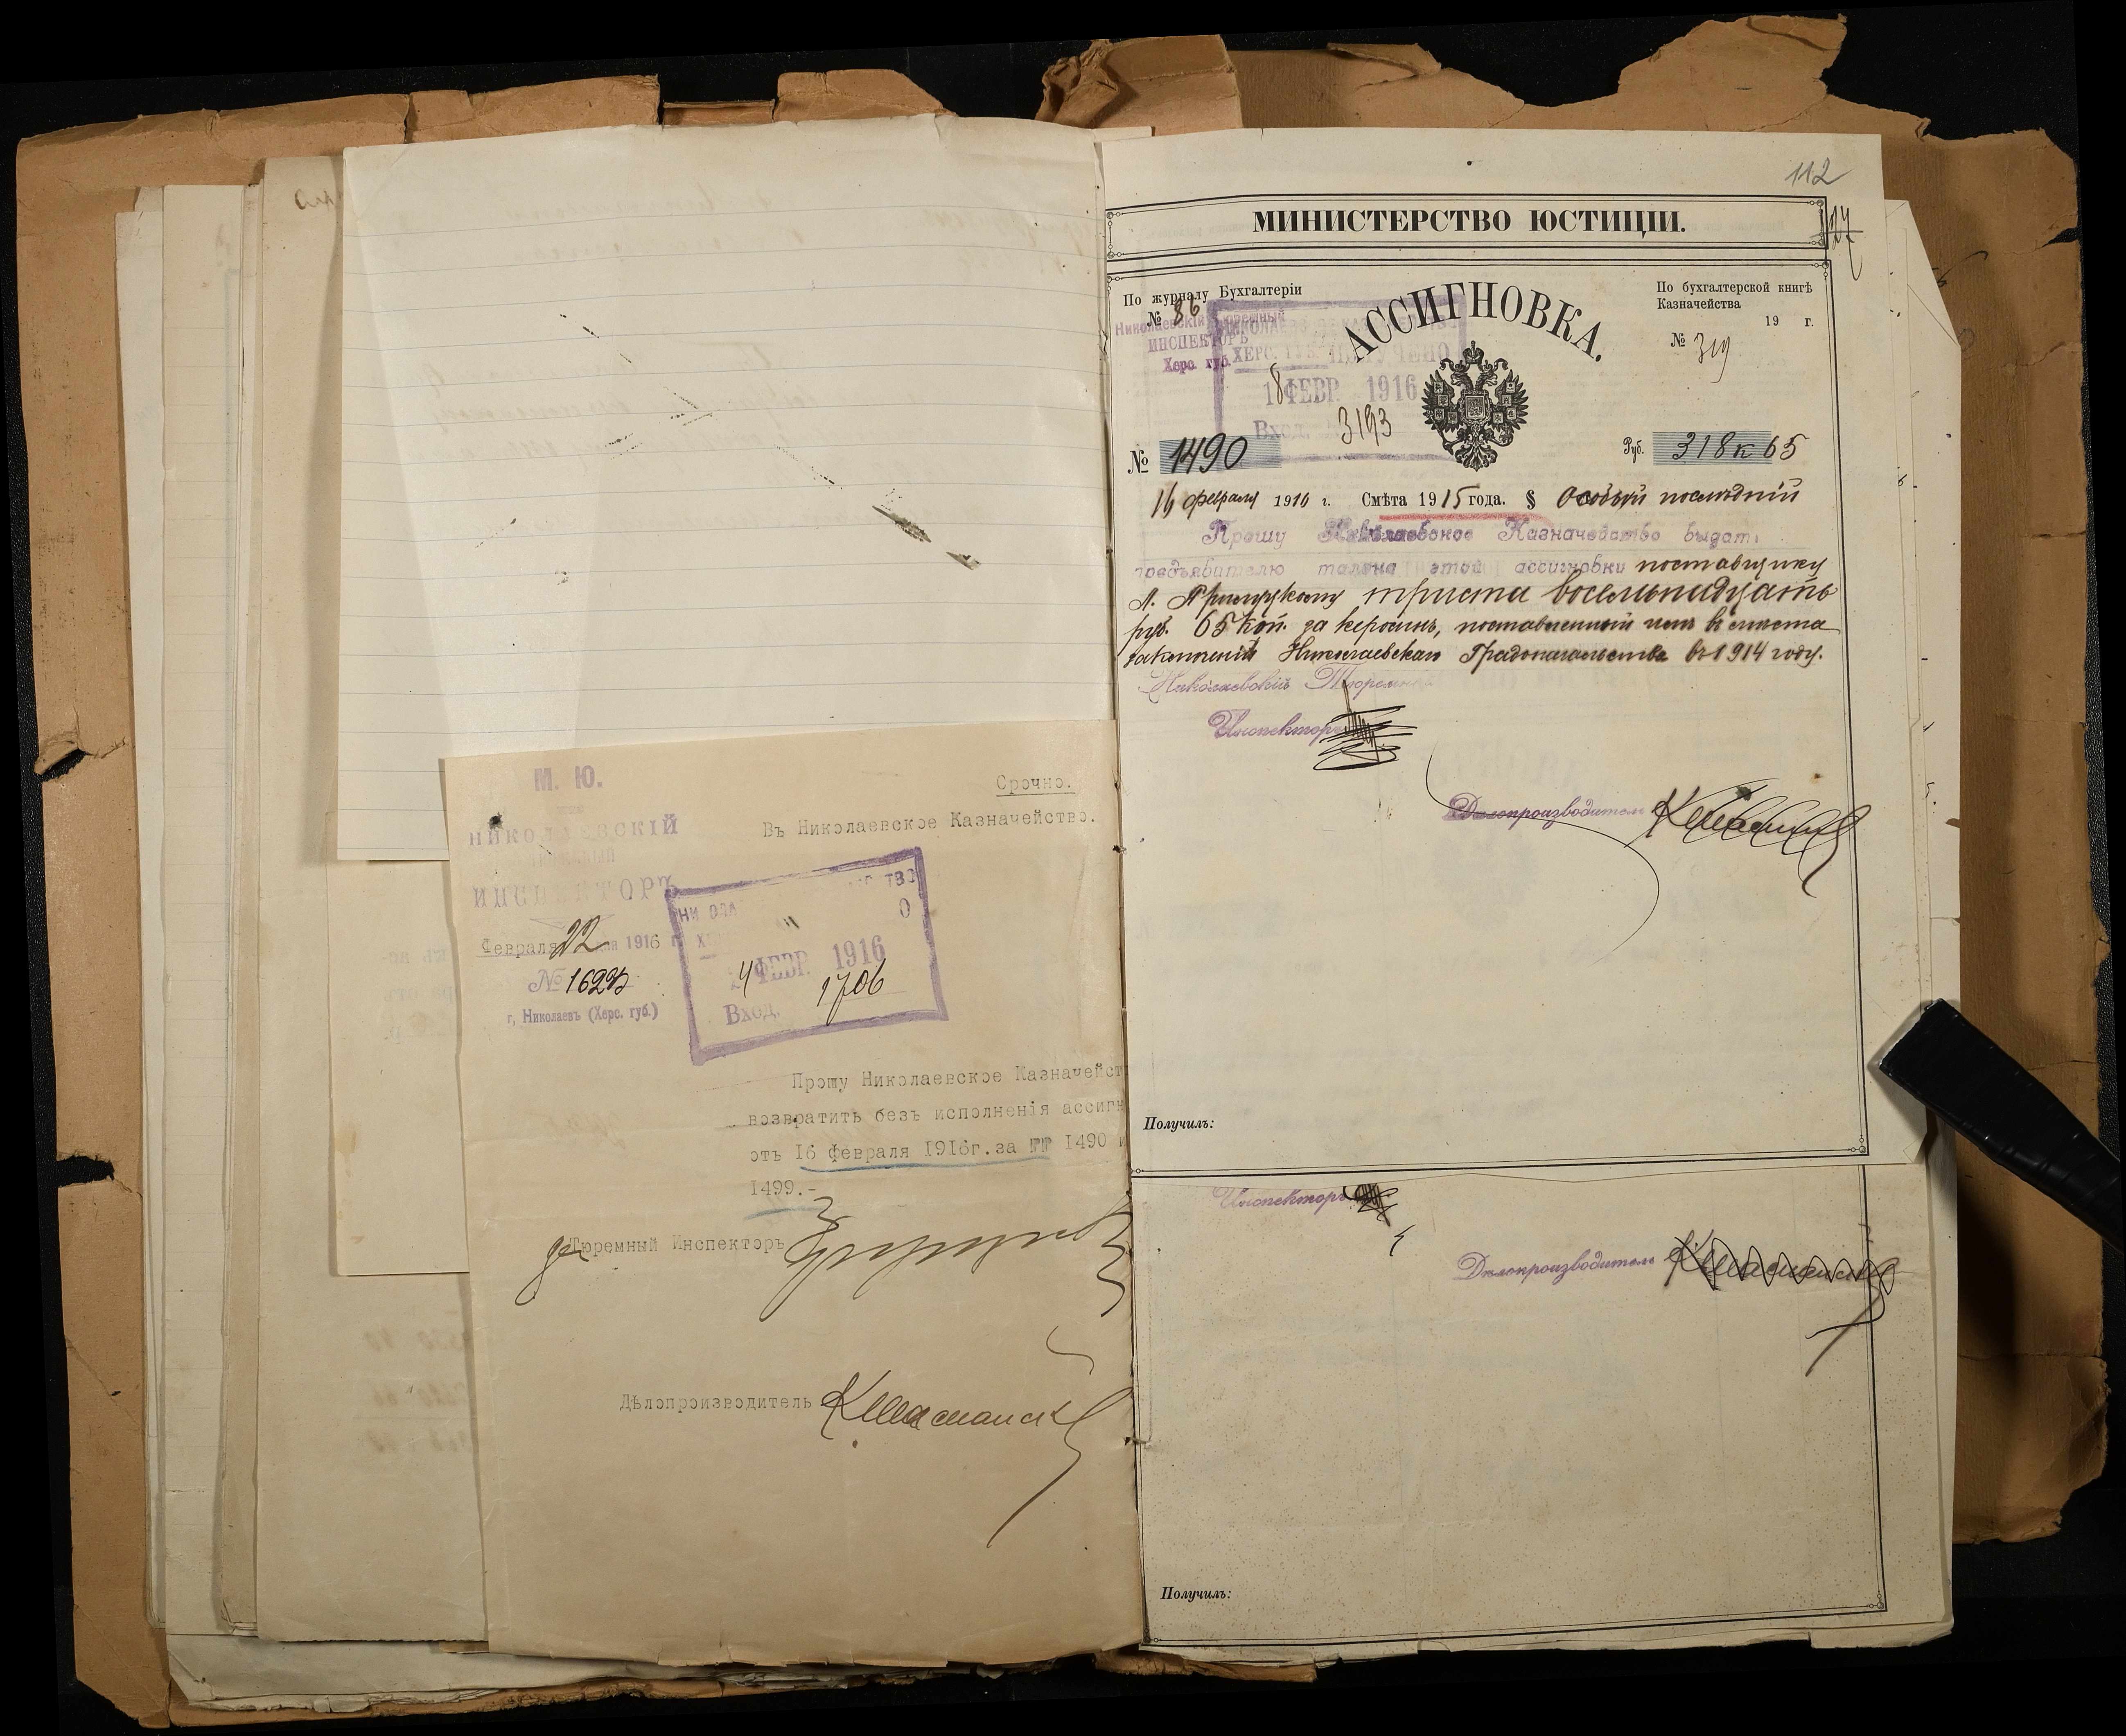 М. Ю.
НИКОЛАЕВСКІЙ
ИНСПЕКТОРЪ
Февраля 22 дня 1916 г.
№ 1623
г. Николаевъ (Херс. губ.)
Срочно.
Въ Николаевское Казначейство.
ФЕВР. 1916
Вход. 1706
Прошу Николаевское Казначейст
возвратить безъ исполненія ассигн
отъ 16 февраля 1916г. за №№ 1490 и
1499.-
Тюремный Инспекторъ
Дѣлопроизводитель
112
МИНИСТЕРСТВО ЮСТИЦІИ.
По журналу Бухгалтеріи
№ 86
Николаевскій Тюремный
ИНСПЕКТОРЪ
Херс. губ.
АССИГНОВКА.
По бухгалтерской книгѣ
Казначейства
19 г.
№ 319
ПОЛУЧЕНО
18 ФЕВР. 1916
Вход. 3193
№ 1490
Руб. 318 к 65
16 февраля 1916 г. Смѣта 1915 года. § Особый послѣдній
Прошу Николаевское Казначейство выдать
предъявителю талона этой ассигновки поставщику
Л. Прилуцкому триста восемьнадцать
руб. 65 коп. за керосинъ, поставленный имъ въ мѣста
заключенія Николаевскаго Градоначальства въ 1914 году.
Николаевскій Тюремный
Инспекторъ
Дѣлопроизводитель
Получилъ:
Инспекторъ
Дѣлопроизводитель
Получилъ: